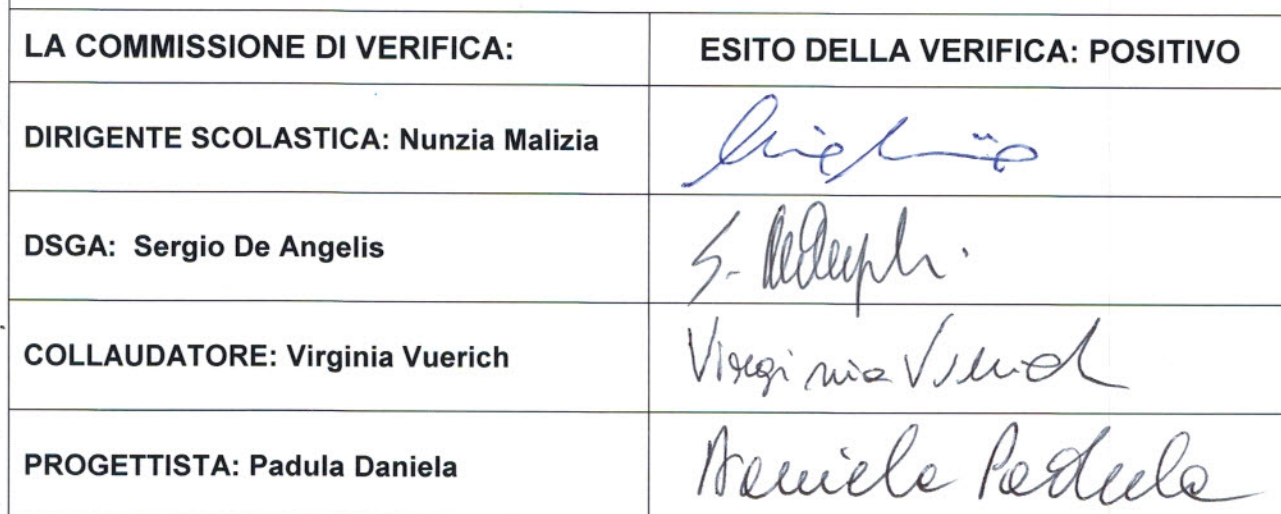 LA COMMISSIONE DI VERIFICA: ESITO DELLA VERIFICA: POSITIVO
DIRIGENTE SCOLASTICA: Nunzia Malizia
DSGA: Sergio De Angelis S. De Angelis
COLLAUDATORE: Virginia Vuerich Virginia Vuerich
PROGETTISTA: Padula Daniela Daniela Padula